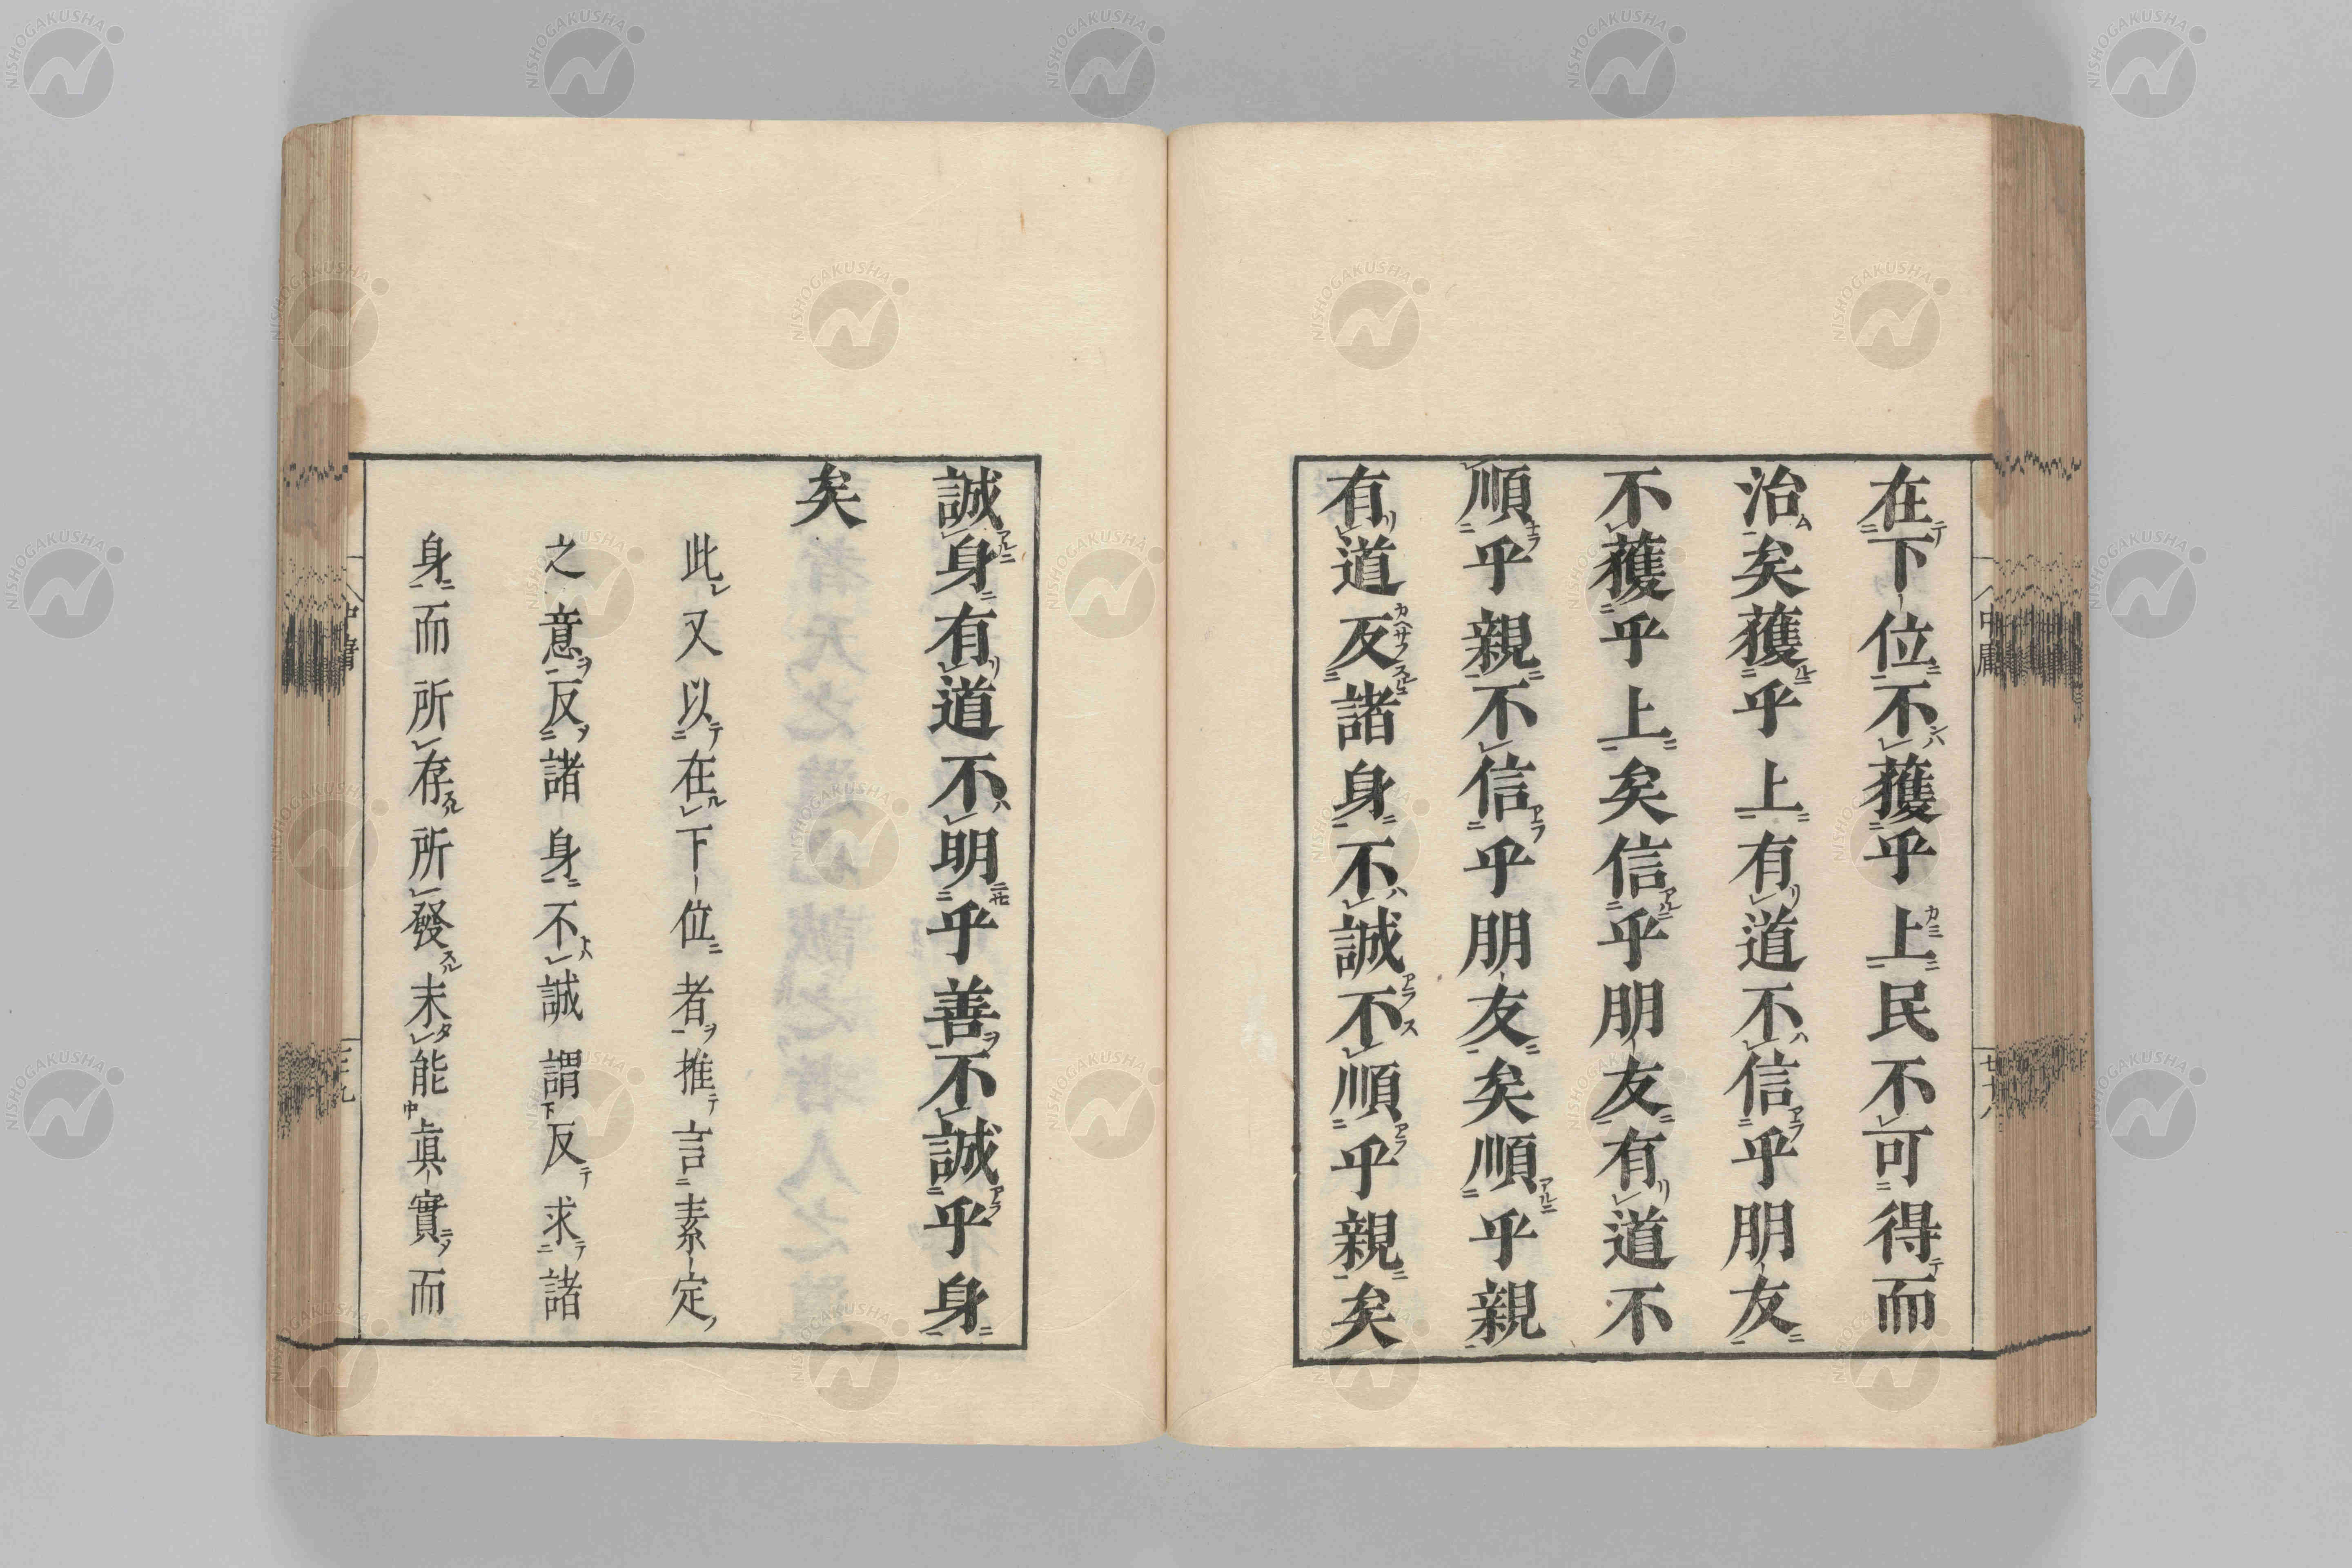 在下位不獲乎上民不可得而
治矣獲乎上有道不信乎朋友
不獲乎上矣信乎朋友有道不
順乎親不信乎朋友矣順乎親
有道反諸身不誠不順乎親矣
誠身有道不明乎善不誠乎身
矣
此又以在下位者推言素定
之意反諸身不誠謂反求諸
身而所存所發未能眞實而
中庸
NISHOGAKUSHA